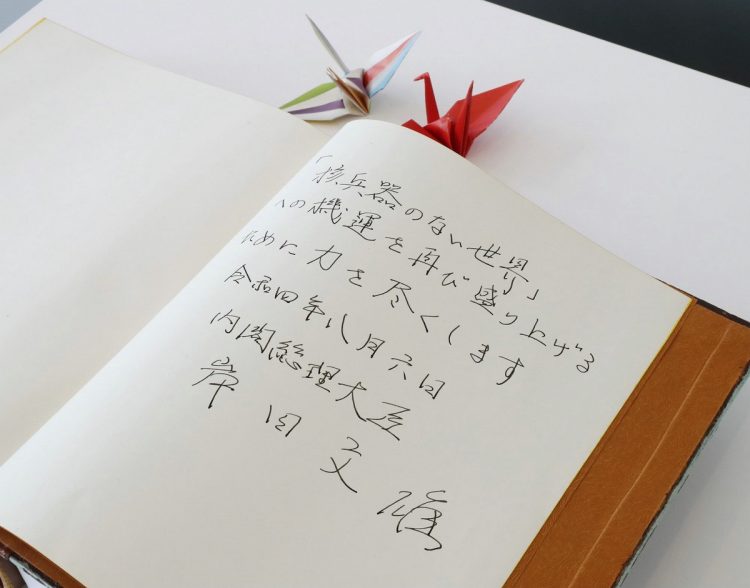 「核兵器のない世界」
への機運を再び盛り上げる
ために力を尽くします
令和四年八月六日
内閣総理大臣
岸田文雄